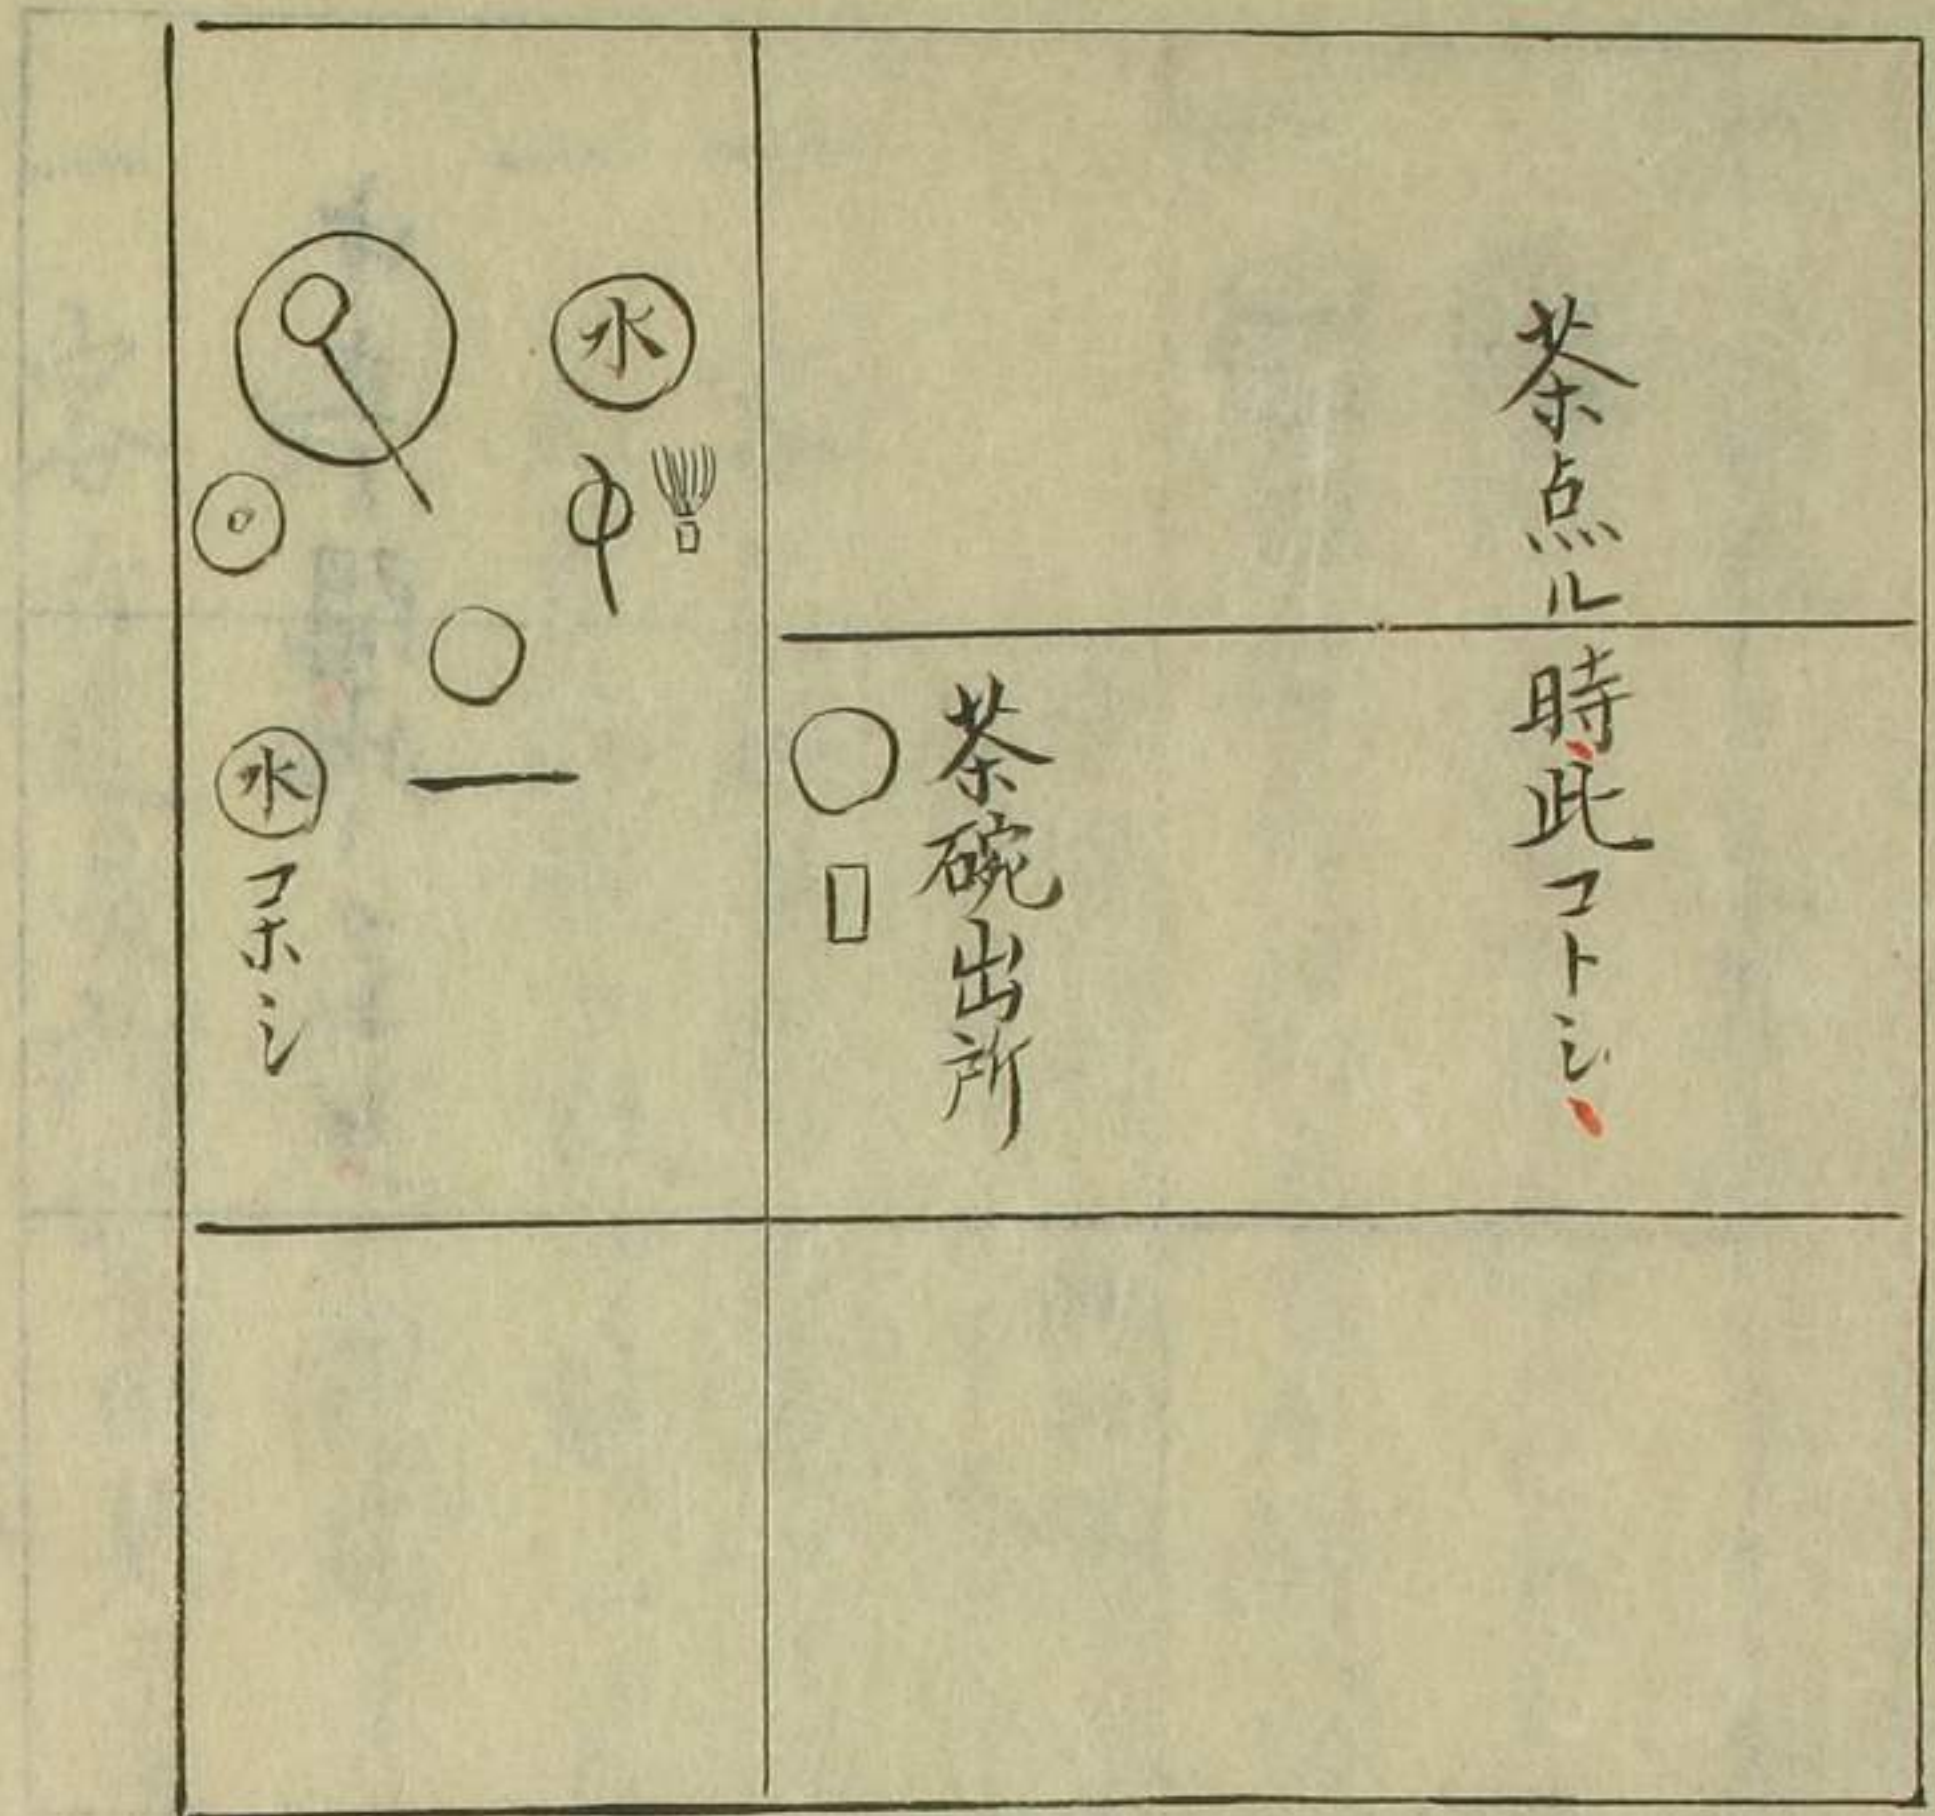 茶点ル時此コトシ
茶碗出所
水
水コホシ